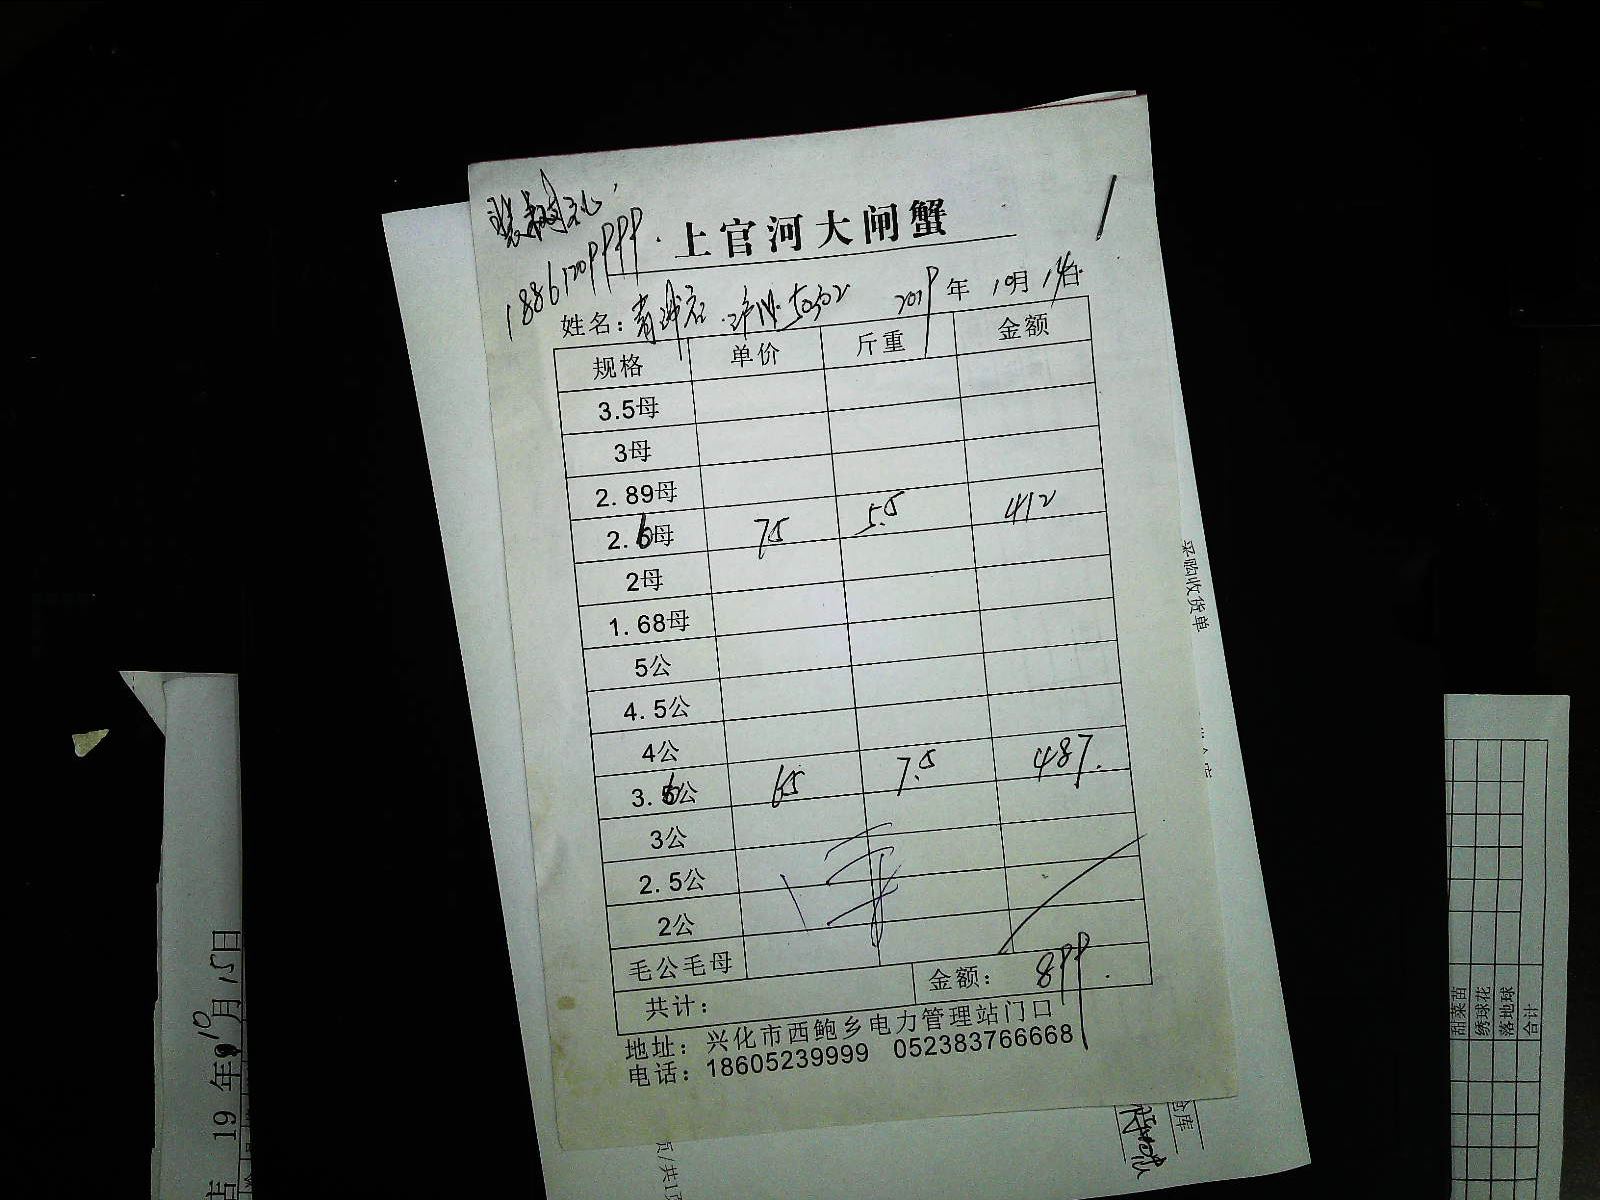 上官河大闸蟹
姓名： 2019年10月14日
规格 单价 斤重 金额
3.5母
3母
2.89母
2.6母 75 5.5 412
2母
1.68母
5公
4.5公
4公
3.6公 65 7.5 487.
3公
2.5公
2公
毛公毛母
共计： 金额： 899.
地址：兴化市西鲍乡电力管理站门口
电话：18605239999 052383766668
采购收货单
仓库
19年10月15日
甜菜苗
绣球花
落地球
合计